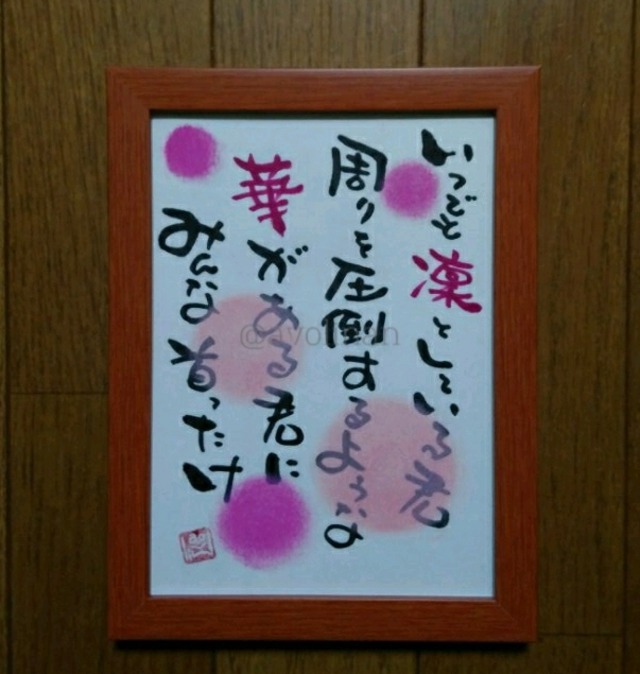 いつでも凛としている君
周りを圧倒するような
華がある君に
みんな首ったけ